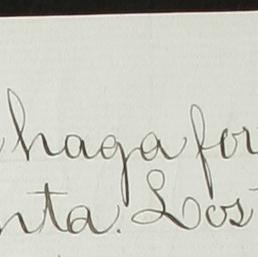 haga for
nta. Los